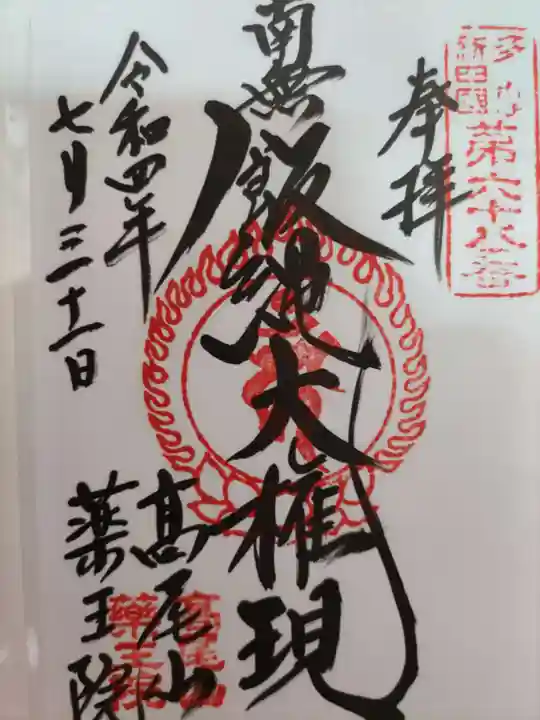 奉拝
多摩
新四国
第六十八番
南無飯縄大権現
令和四年
七月三十一日
高尾山
薬王院
高尾山
薬王院